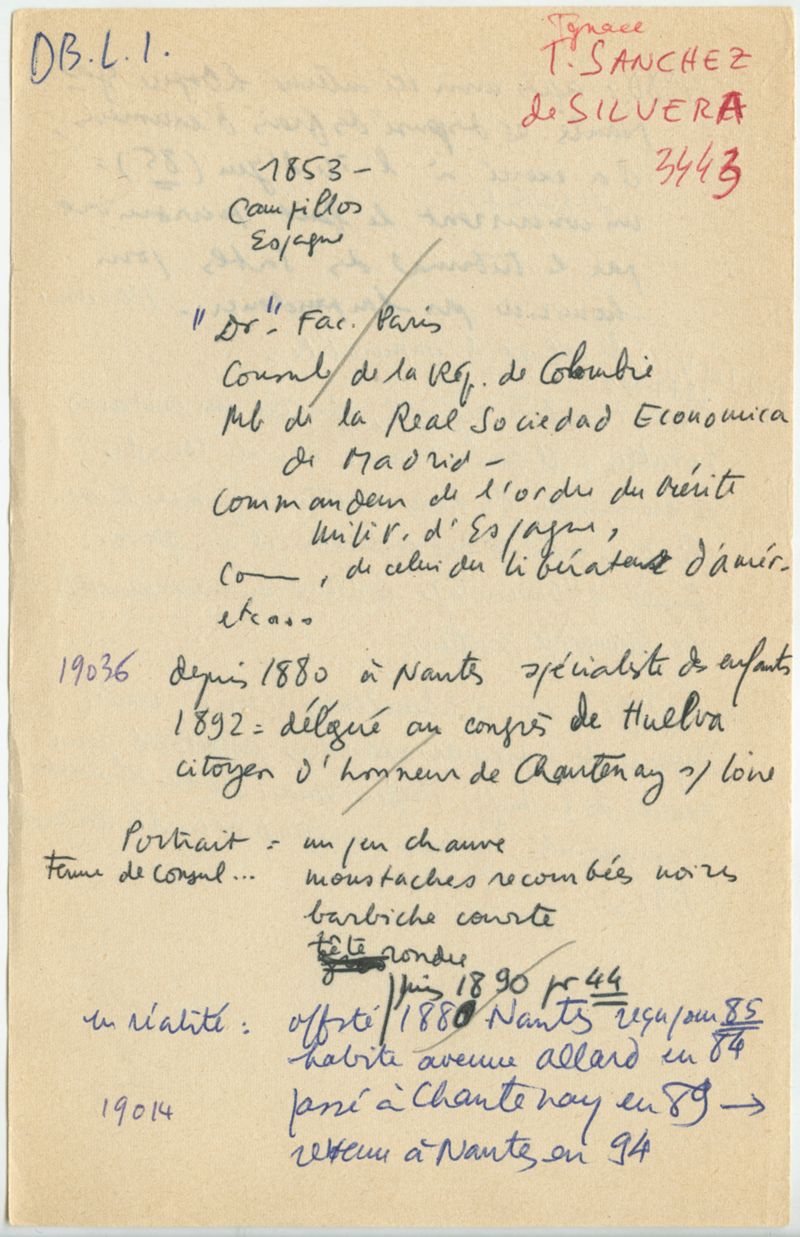 DB.L.I.
Ignace
T. SANCHEZ
de SILVERA
3443
1853 -
Campillos
Espagne
"Dr". Fac. Paris
Consul de la Rép. de Colombie
Mb de la Real Sociedad Economica
de Madrid -
Commandeur de l'ordre du Mérite
milit. d'Espagne,
Com , de celui du libérateur d'amér.
etc...
19036 depuis 1880 à Nantes spécialiste des enfants
1892 = délégué au congrès de Huelva
citoyen d'honneur de Chantenay s/ loire
Portrait = un peu chauve
Tenue de Consul... moustaches recourbées noires
barbiche courte
tête ronde
puis 1890 pr 44
en réalité : off sté 1880 Nantes reçu pour 85
habite avenue allard en 84
19014 passé à Chantenay en 89 →
retenu à Nantes en 94